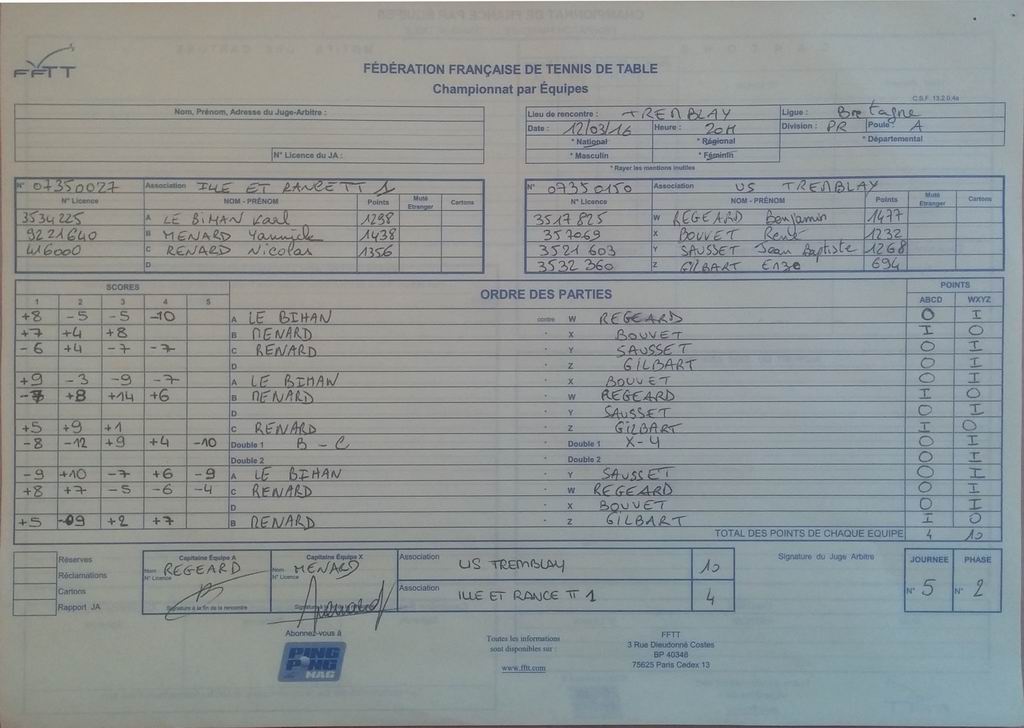 FFTT
FÉDÉRATION FRANÇAISE DE TENNIS DE TABLE
Championnat par Équipes
C.S.F. 13.2.0.4a
Nom, Prénom, Adresse du Juge-Arbitre :
N° Licence du JA :
Lieu de rencontre : TREMBLAY Ligue : Bretagne
Date : 12/03/16 Heure : 20H Division : PR Poule : A
* National * Régional * Départemental
* Masculin * Féminin
* Rayer les mentions inutiles
N° 07350027 Association ILLE ET RANCE TT 1
N° Licence NOM - PRÉNOM Points Muté Etranger Cartons
3534225 A LE BIHAN Karl 1298
9221640 B MENARD Yannick 1438
416000 C RENARD Nicolas 1356
D
N° 07350150 Association US TREMBLAY
N° Licence NOM - PRÉNOM Points Muté Etranger Cartons
3517825 W REGEARD Benjamin 1477
357069 X BOUVET René 1232
3521603 Y SAUSSET Jean Baptiste 1268
3532360 Z GILBART Enzo 694
SCORES ORDRE DES PARTIES POINTS
1 2 3 4 5 ABCD WXYZ
+8 -5 -5 -10 A LE BIHAN contre W REGEARD O I
+7 +4 +8 B MENARD - X BOUVET I O
-6 +4 -7 -7 C RENARD - Y SAUSSET O I
D - Z GILBART O I
+9 -3 -9 -7 A LE BIHAN - X BOUVET O I
-7 +8 +14 +6 B MENARD - W REGEARD I O
D - Y SAUSSET O I
+5 +9 +1 C RENARD - Z GILBART I O
-8 -12 +9 +4 -10 Double 1 B - C - Double 1 X-Y O I
Double 2 - Double 2 O I
-9 +10 -7 +6 -9 A LE BIHAN - Y SAUSSET O I
+8 +7 -5 -6 -4 C RENARD - W REGEARD O I
D - X BOUVET O I
+5 -09 +2 +7 B MENARD - Z GILBART I O
TOTAL DES POINTS DE CHAQUE EQUIPE 4 10
Réserves
Réclamations
Cartons
Rapport JA
Capitaine Équipe A
Nom REGEARD
N° Licence
Signature à la fin de la rencontre
Capitaine Équipe X
Nom MENARD
N° Licence
Association US TREMBLAY 10
Association ILLE ET RANCE TT 1 4
Signature du Juge Arbitre
JOURNEE PHASE
N° 5 N° 2
Abonnez-vous à
PING PONG MAG
Toutes les informations
sont disponibles sur :
www.fftt.com
FFTT
3 Rue Dieudonné Costes
BP 40348
75625 Paris Cedex 13